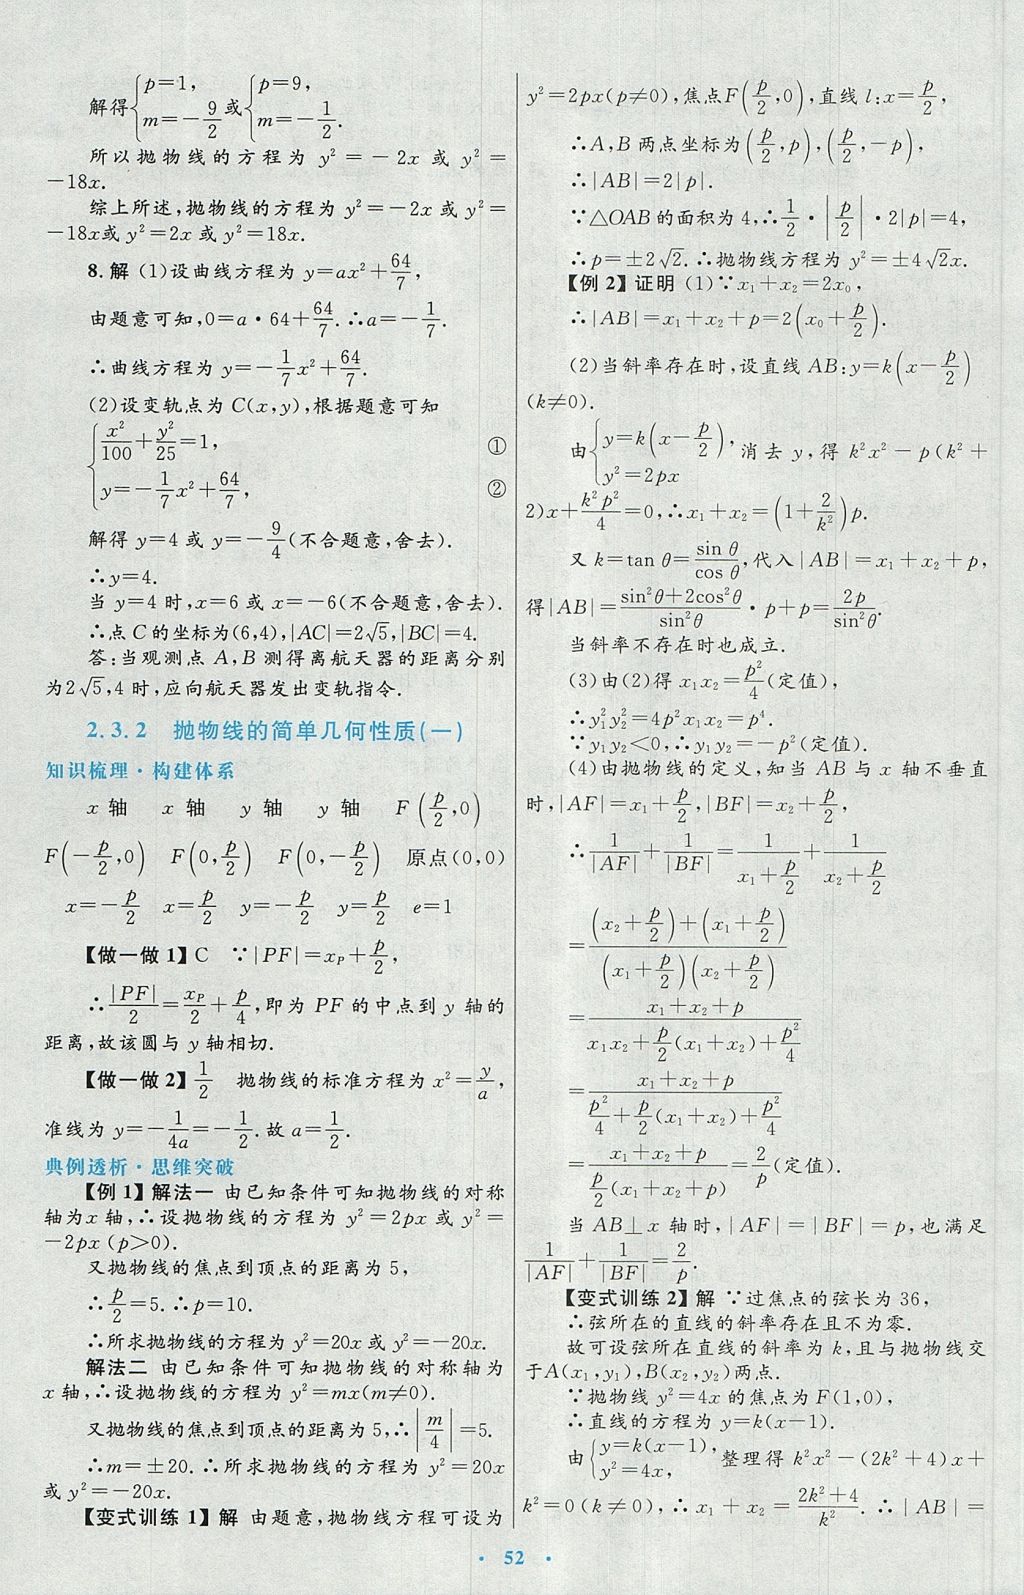 解得{p=1, m=-9/2 或 {p=9, m=-1/2.
所以抛物线的方程为 y²=-2x 或 y²=
-18x.
综上所述,抛物线的方程为 y²=-2x 或 y²=
-18x或 y²=2x 或 y²=18x.
8.解 (1)设曲线方程为 y=ax²+64/7,
由题意可知,0=a·64+64/7.∴a=-1/7.
∴曲线方程为 y=-1/7x²+64/7.
(2)设变轨点为 C(x,y),根据题意可知
{x²/100+y²/25=1, ①
y=-1/7x²+64/7, ②
解得 y=4 或 y=-9/4(不合题意,舍去).
∴y=4.
当 y=4 时,x=6 或 x=-6(不合题意,舍去).
∴点 C 的坐标为(6,4),|AC|=2√5,|BC|=4.
答:当观测点 A,B 测得离航天器的距离分别
为2√5,4 时,应向航天器发出变轨指令.
2.3.2 抛物线的简单几何性质(一)
知识梳理·构建体系
x 轴 x 轴 y 轴 y 轴 F(p/2,0)
F(-p/2,0) F(0,p/2) F(0,-p/2) 原点(0,0)
x=-p/2 x=p/2 y=-p/2 y=p/2 e=1
【做一做 1】C ∵|PF|=x_P+p/2,
∴|PF|/2=x_P/2+p/4,即为 PF 的中点到 y 轴的
距离,故该圆与 y 轴相切.
【做一做 2】1/2 抛物线的标准方程为 x²=y/a,
准线为 y=-1/4a=-1/2.故 a=1/2.
典例透析·思维突破
【例 1】解法一 由已知条件可知抛物线的对称
轴为x 轴,∴设抛物线的方程为 y²=2px 或 y²=
-2px (p>0).
又抛物线的焦点到顶点的距离为 5,
∴p/2=5.∴p=10.
∴所求抛物线的方程为 y²=20x 或 y²=-20x.
解法二 由已知条件可知抛物线的对称轴为
x 轴,∴设抛物线的方程为 y²=mx(m≠0).
又抛物线的焦点到顶点的距离为 5,∴|m/4|=5.
∴m=±20.∴所求抛物线的方程为 y²=20x
或 y²=-20x.
【变式训练 1】解 由题意,抛物线方程可设为
y²=2px(p≠0),焦点F(p/2,0),直线 l:x=p/2,
∴A,B 两点坐标为(p/2,p),(p/2,-p),
∴|AB|=2|p|.
∵△OAB 的面积为 4,∴1/2·|p/2|·2|p|=4,
∴p=±2√2.∴抛物线方程为 y²=±4√2x.
【例 2】证明 (1)∵x₁+x₂=2x₀,
∴|AB|=x₁+x₂+p=2(x₀+p/2).
(2)当斜率存在时,设直线 AB:y=k(x-p/2)
(k≠0).
由{y=k(x-p/2), y²=2px 消去 y,得 k²x²-p(k²+
2)x+k²p²/4=0,∴x₁+x₂=(1+2/k²)p.
又 k=tan θ=sin θ/cos θ,代入|AB|=x₁+x₂+p,
得|AB|=(sin²θ+2cos²θ)/sin²θ·p+p=2p/sin²θ.
当斜率不存在时也成立.
(3)由(2)得 x₁x₂=p²/4(定值),
∴y₁²y₂²=4p²x₁x₂=p⁴.
∵y₁y₂<0,∴y₁y₂=-p²(定值).
(4)由抛物线的定义,知当 AB 与 x 轴不垂直
时,|AF|=x₁+p/2,|BF|=x₂+p/2,
∴1/|AF|+1/|BF|=1/(x₁+p/2)+1/(x₂+p/2)
=((x₂+p/2)+(x₁+p/2))/((x₁+p/2)(x₂+p/2))
=(x₁+x₂+p)/(x₁x₂+p/2(x₁+x₂)+p²/4)
=(x₁+x₂+p)/(p²/4+p/2(x₁+x₂)+p²/4)
=(x₁+x₂+p)/(p/2(x₁+x₂+p))=2/p(定值).
当 AB⊥x 轴时,|AF|=|BF|=p,也满足
1/|AF|+1/|BF|=2/p.
【变式训练 2】解 ∵过焦点的弦长为 36,
∴弦所在的直线的斜率存在且不为零.
故可设弦所在直线的斜率为 k,且与抛物线交
于A(x₁,y₁),B(x₂,y₂)两点.
∵抛物线 y²=4x 的焦点为 F(1,0),
∴直线的方程为 y=k(x-1).
由{y=k(x-1), y²=4x, 整理得 k²x²-(2k²+4)x+
k²=0(k≠0),∴x₁+x₂=(2k²+4)/k².∴|AB|=
·52·